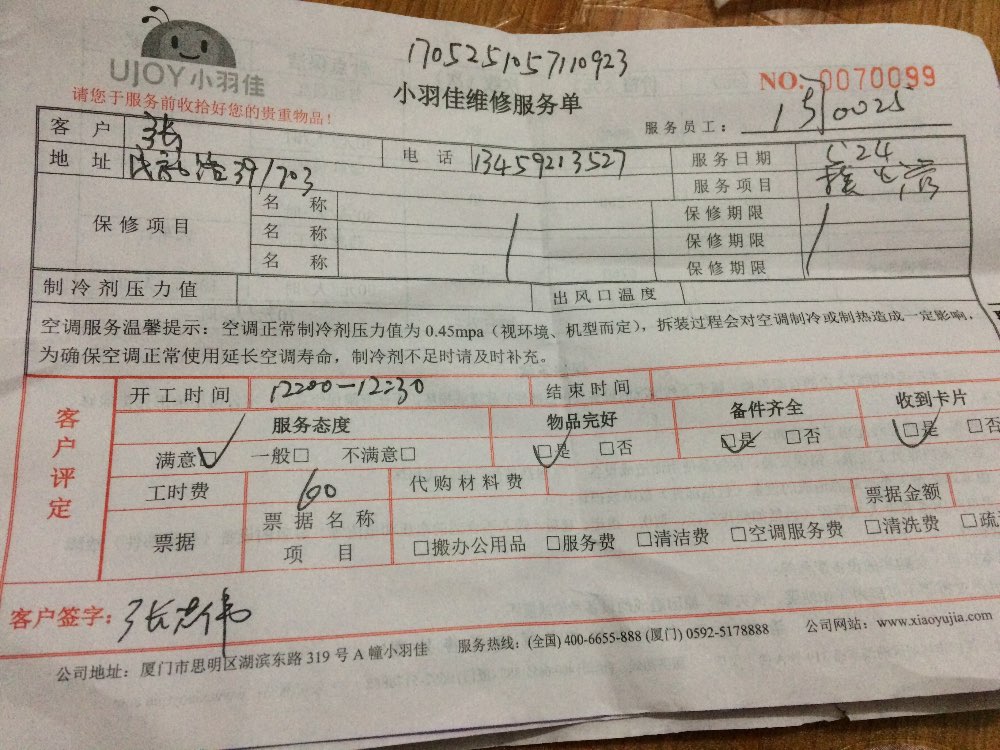 170525105711​0923
UJOY小羽佳
NO. 0070099
请您于服务前收拾好您的贵重物品！
小羽佳维修服务单
服务员工： 0025
客户 张 电话 13459213527 服务日期 5.24
地址 39/703 服务项目
保修项目 名称 保修期限
名称 保修期限
名称 保修期限
制冷剂压力值 出风口温度
空调服务温馨提示：空调正常制冷剂压力值为 0.45mpa（视环境、机型而定），拆装过程会对空调制冷或制热造成一定影响，
为确保空调正常使用延长空调寿命，制冷剂不足时请及时补充。
客户评定
开工时间 12:00-12:30 结束时间
服务态度 物品完好 备件齐全 收到卡片
满意☑ 一般□ 不满意□ ☑是 □否 ☑是 □否 ☑是 □否
工时费 60 代购材料费 票据金额
票据 票据名称
项目 □搬办公用品 □服务费 □清洁费 □空调服务费 □清洗费
客户签字：张志伟
公司地址：厦门市思明区湖滨东路 319 号 A 幢小羽佳 服务热线：(全国) 400-6655-888 (厦门) 0592-5178888 公司网站：www.xiaoyujia.com